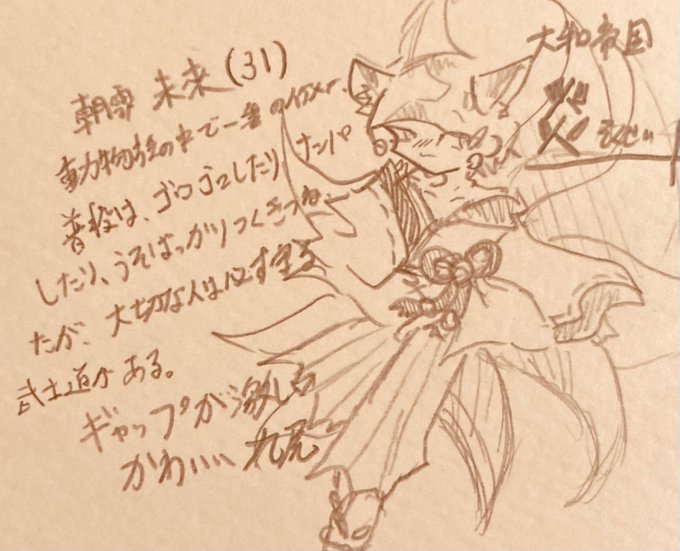 朝雫 未来(31)
動物族の中で一番のイケメン
普段は、ゴロゴロしたり、ナンパ
したり、うそばっかりつくきつね
だが、大切な人は必ず守る
武士道がある。
ギャップが激しい
かわいい 九尾
大和帝国